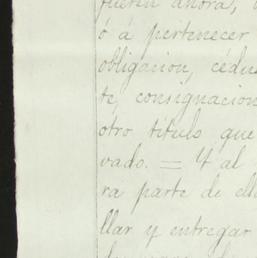 fueren ahora,
ó á pertenecer
obligacion, cédu
te, consignacion
otro titulo que
vado. = Y al
ra parte de ell
llar y entregar